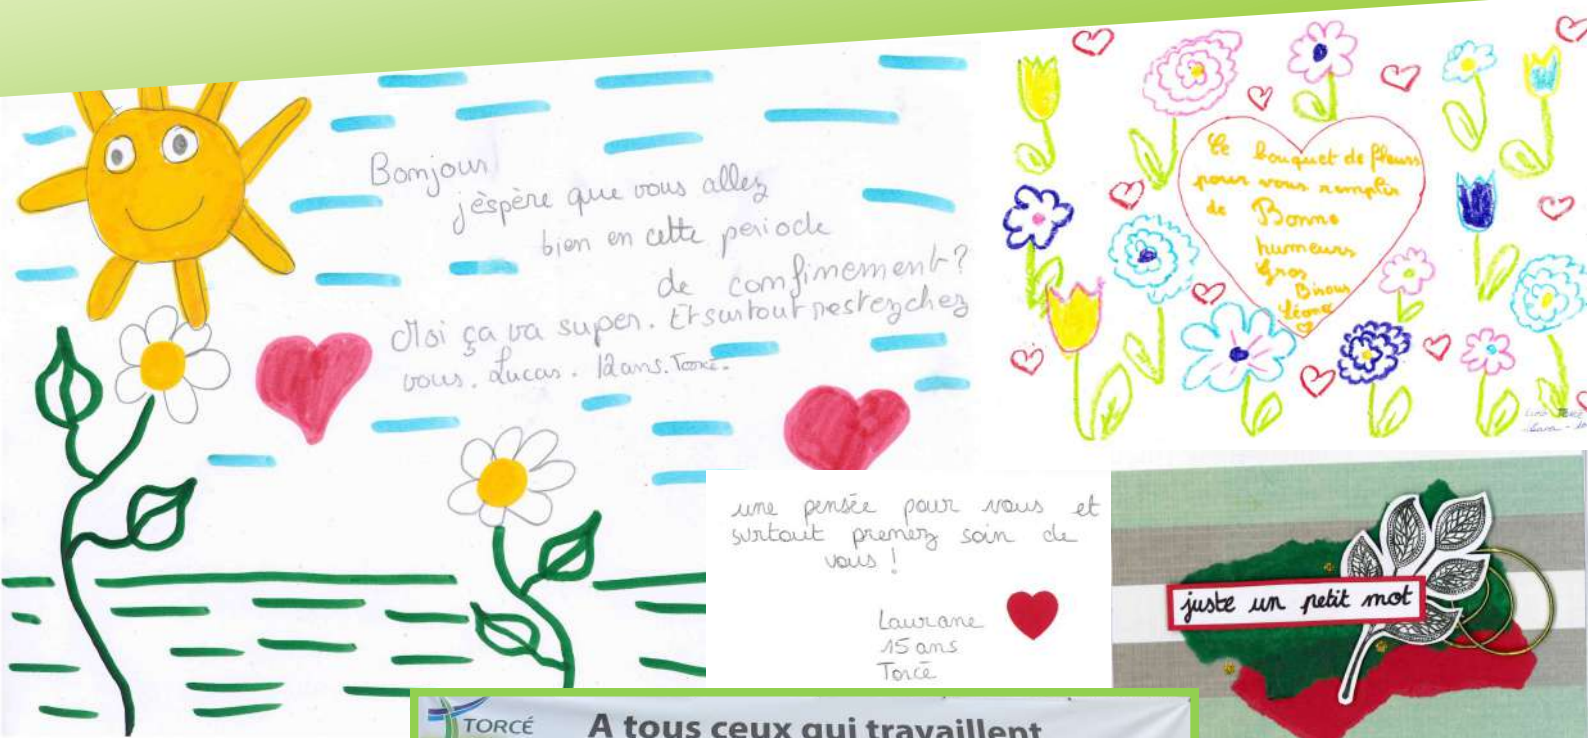 Bonjour
j'èspère que vous allez
bien en cette periode
de confinement?
Moi ça va super. Et surtout restez chez
vous. Lucas. 12 ans. Torcé.
Ce bouquet de fleurs
pour vous remplir
de Bonne
humeurs
Gros
Bisous
Léona
une pensée pour vous et
surtout prenez soin de
vous !
Laurane
15 ans
Torcé
juste un petit mot
TORCÉ
A tous ceux qui travaillent